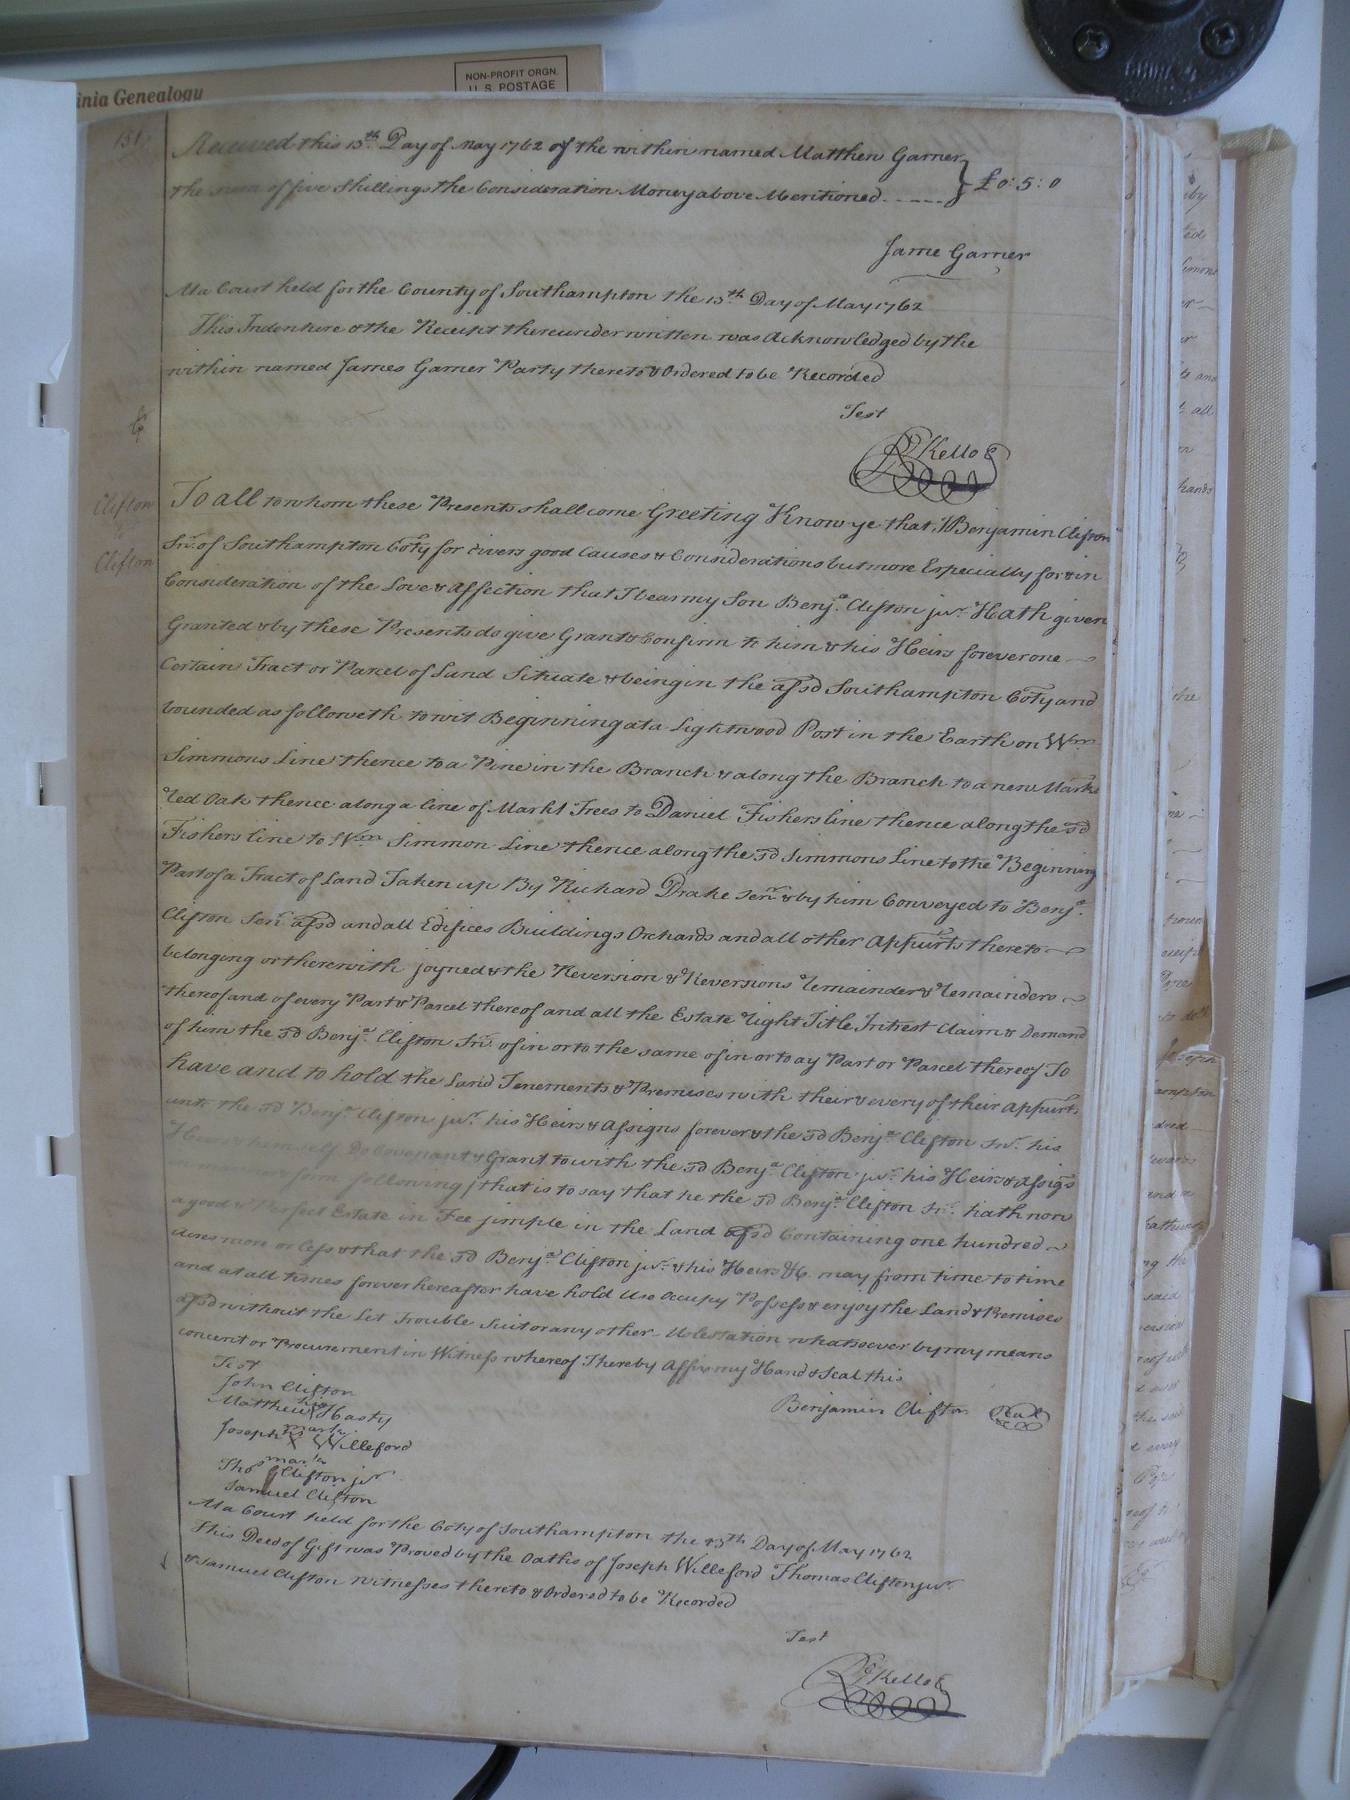 inia Genealogy
NON-PROFIT ORGN.
U.S. POSTAGE
151
Received this 13th Day of May 1762 of the within named Matthew Garner
the sum of five Shillings the Consideration Money above Mentioned
£0:5:0
Jame Garner
At a Court held for the County of Southampton the 13th Day of May 1762
This Indenture & the Receipt thereunder written was Acknowledged by the
within named James Garner Party thereto & Ordered to be Recorded
Test
Rd Kello C
Clifton
to
Clifton
To all to whom these Presents shall come Greeting Know ye that I Benjamin Clifton
Snr. of Southampton Coty for divers good Causes & Considerations but more Especially for & in
Consideration of the Love & Affection that I bear my Son Benja. Clifton jur. Hath given
Granted & by these Presents do give Grant & Confirm to him & his Heirs forever one
Certain Tract or Parcel of Land Situate & being in the afsd Southampton Coty and
bounded as followeth to wit Beginning at a Lightwood Post in the Earth on Wm
Simmons Line thence to a Pine in the Branch & along the Branch to a new Markt
red Oak thence along a line of Markt Trees to Daniel Fishers line thence along the sd
Fishers line to Wm Simmon Line thence along the sd Simmons Line to the Beginning
Part of a Tract of Land Taken up By Richard Drake Senr & by him Conveyed to Benja.
Clifton Senr afsd and all Edifices Buildings Orchards and all other Appurts thereto
belonging or therewith joyned & the Reversion & Reversions Remainder & Remainders
thereof and of every Part & Parcel thereof and all the Estate right Title, Intrest Claim & Demand
of him the sd Benja. Clifton Snr. of in or to the same of in or to ay Part or Parcel thereof To
have and to hold the Land Tenements & Premises with their & every of their Appurts
unto the sd Benja. Clifton jur. his Heirs & Assigns forever & the sd Benja. Clifton Snr. his
Heirs & himself Do Covenant & Grant to with the sd Benja. Clifton jur. his Heirs & Assigs
in manner & form following, that is to say that he the sd Benja. Clifton Snr. hath now
a good & Perfect Estate in Fee simple in the Land afsd Containing one hundred
acres more or less & that the sd Benja. Clifton jur. & his Heirs &c. may from time to time
and at all times forever hereafter have hold Use Occupy Possess & enjoy the Land & Premises
afsd without the Let Trouble Suit or any other Molestation whatsoever by my means
consent or Procurement in Witness whereof I hereby Affix my Hand & Seal this
Test
John Clifton
Benjamin Clifton Seal
his
Matthew Hasty
mark
Joseph X Willeford
mark
Thos Clifton jur
Samuel Clifton
At a Court held for the Coty of Southampton the 13th Day of May 1762
This Deed of Gift was Proved by the Oaths of Joseph Willeford Thomas Clifton jur.
& Samuel Clifton Witnesses thereto & Ordered to be Recorded
Test
Rd Kello C